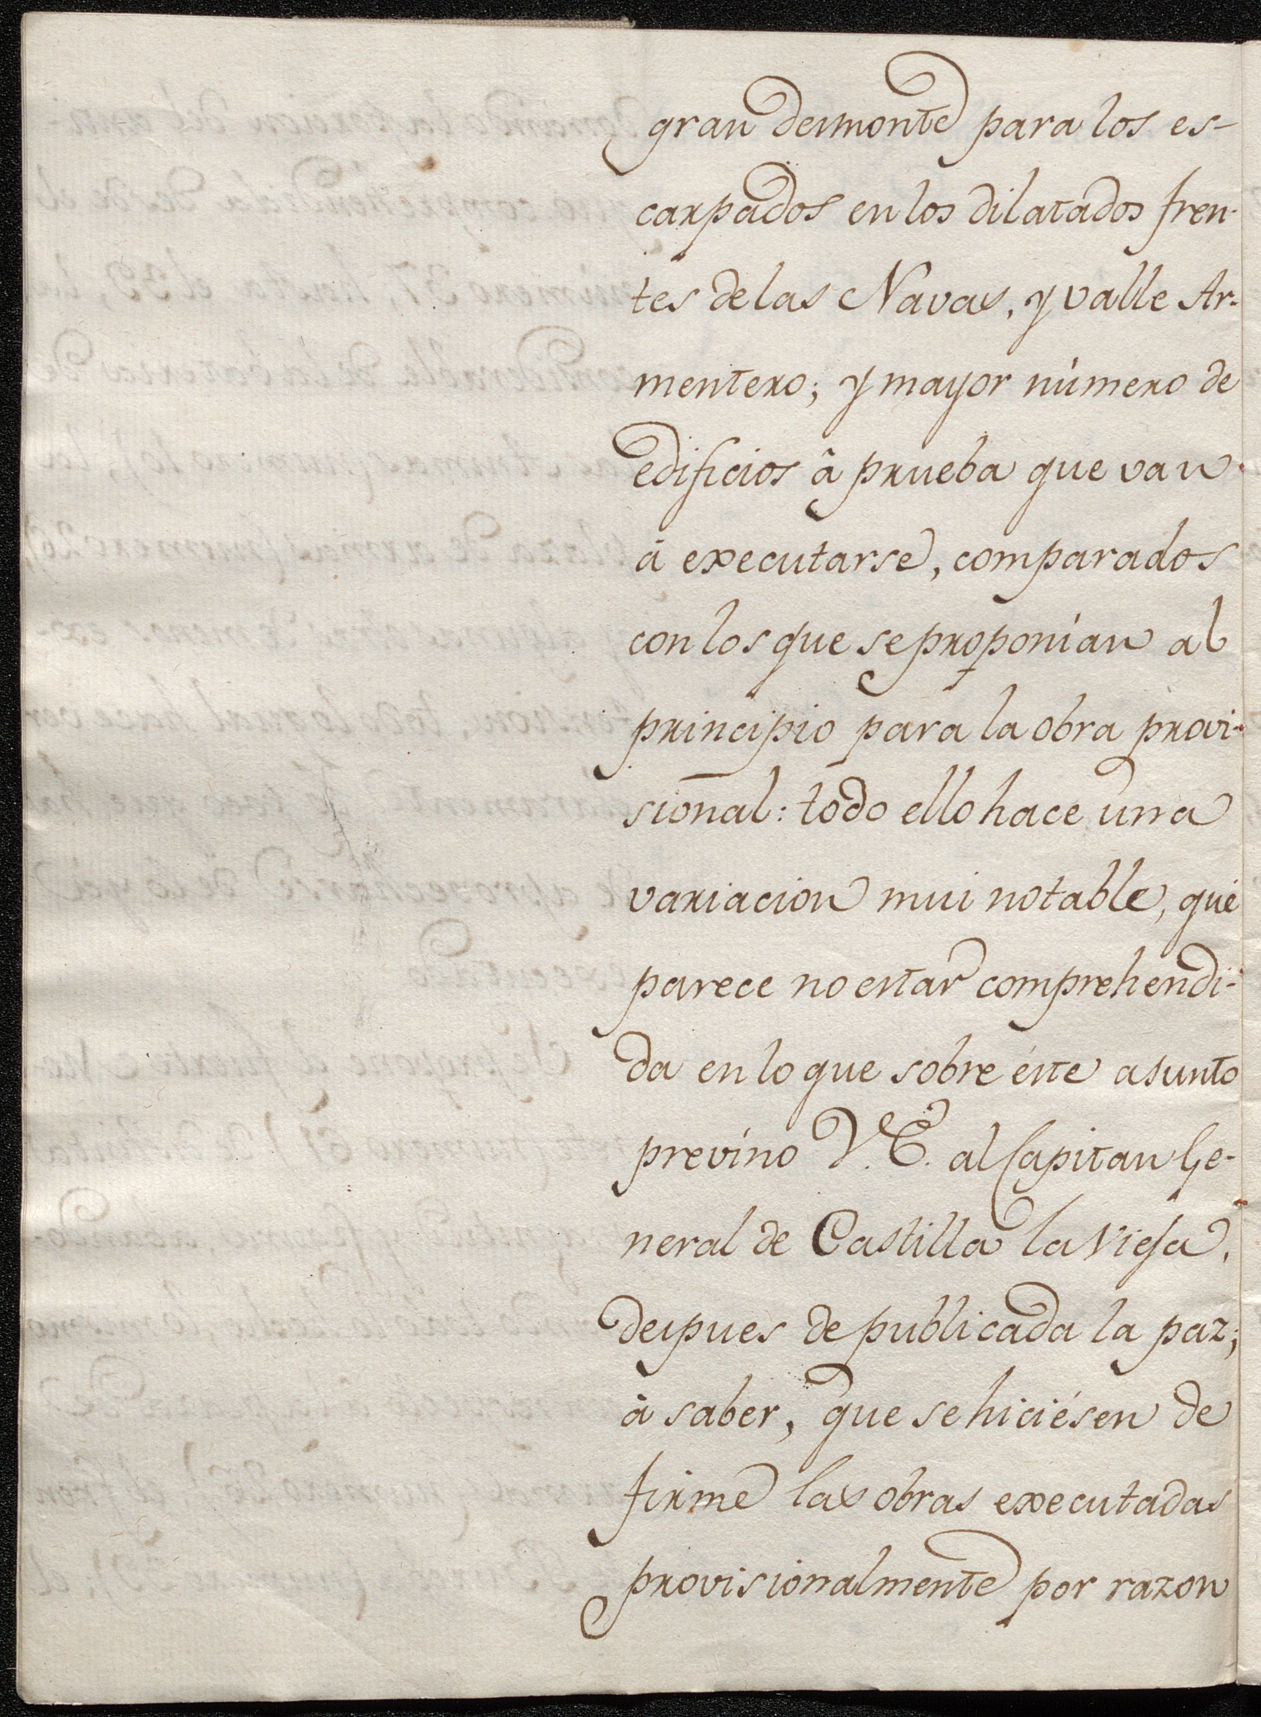 gran desmonte para los es-
carpados en los dilatados fren-
tes de las Navas, y valle Ar-
mentero; y mayor número de
edificios â prueba que van
á executarse, comparados
con los que se proponían al
principio para la obra provi-
sional: todo ello hace una
variacion mui notable, que
parece no estar comprehendi-
da en lo que sobre éste asunto
previno V.E. al Capitan Ge-
neral de Castilla la Vieja,
despues de publicada la paz;
à saber, que se hiciésen de
firme las obras executadas
provisionalmente por razon